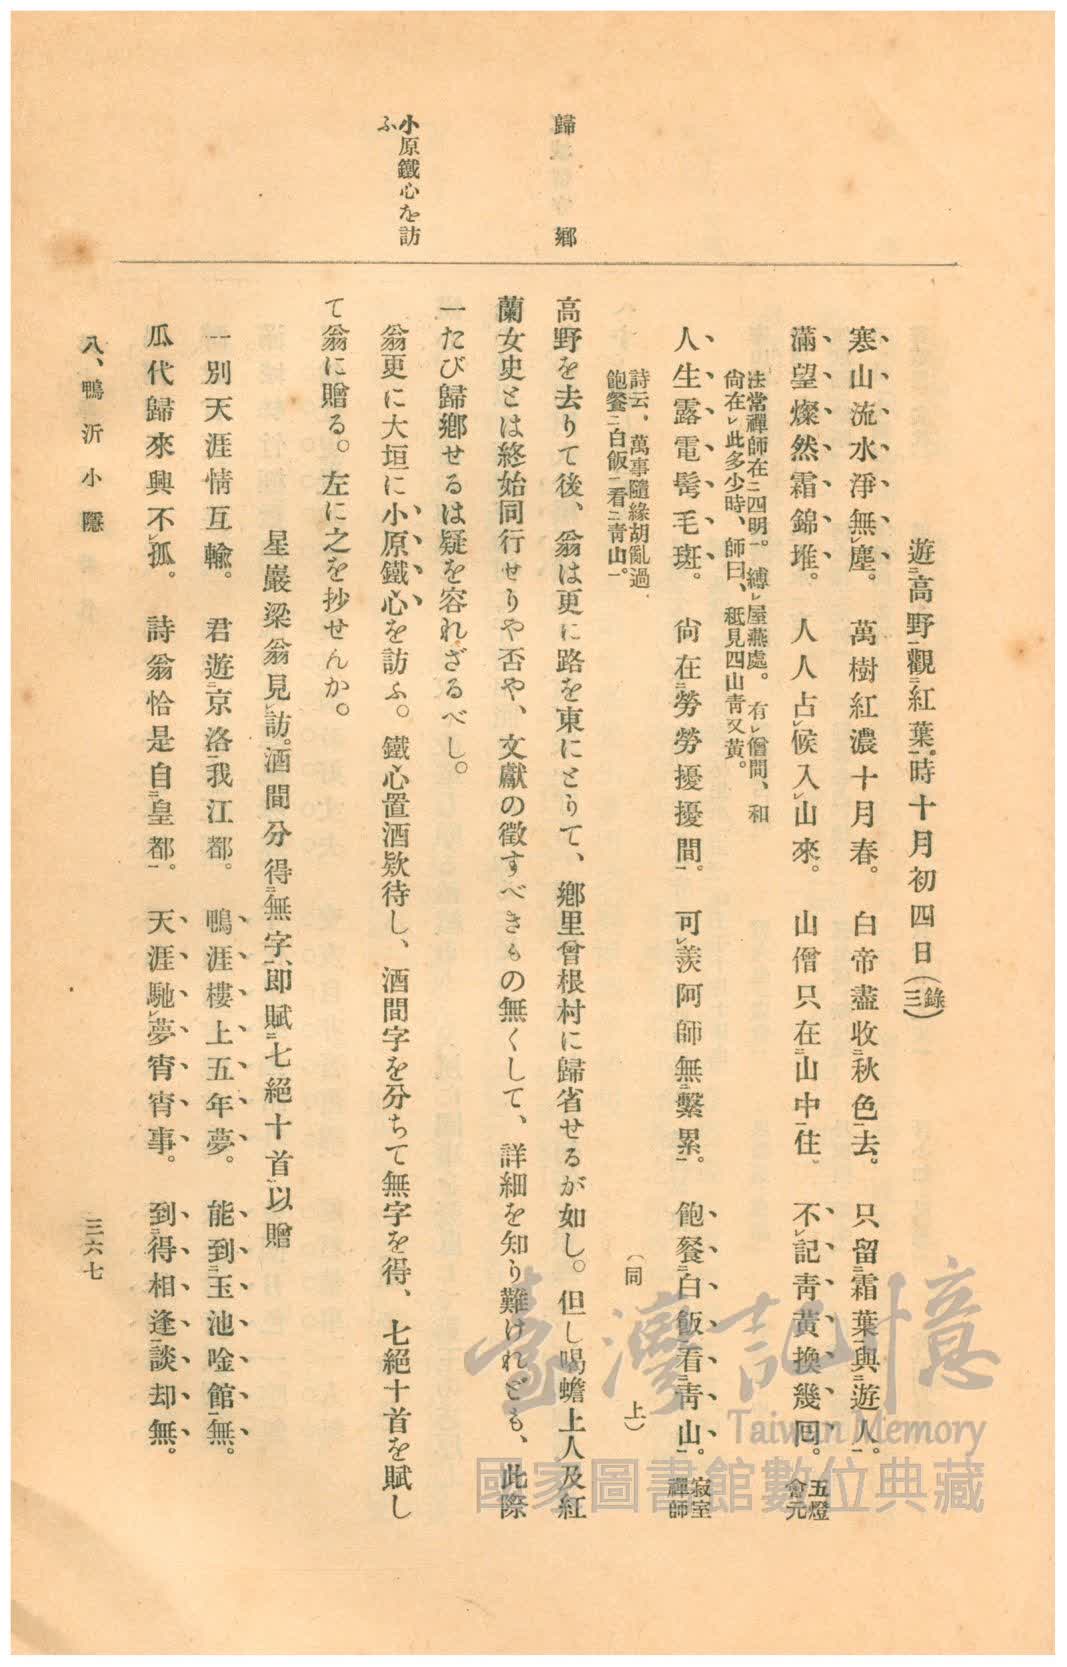 遊㆓高野㆒觀㆓紅葉㆒。時十月初四日(錄三)
寒山流水淨無㆑塵。 萬樹紅濃十月春。 白帝盡收㆓秋色㆒去。 只留㆓霜葉㆒與㆓遊人㆒。
滿望燦然霜錦堆。 人人占㆑候入㆑山來。 山僧只在㆓山中㆒住。 不㆑記靑黃換幾囘。 五燈會元
法常禪師在㆓四明㆒。縛㆑屋燕處。有㆑僧問、和
尙在㆑此多少時、師曰、秪見四山靑又黃。
人生露電髩毛斑。 尙在㆓勞勞擾擾間㆒。 可㆑羨阿師無㆓繫累㆒。 飽餐㆓白飯㆒看㆓靑山㆒。 寂室禪師
詩云、萬事隨緣胡亂過、
飽餐㆓白飯㆒看㆓靑山㆒。
(同 上)
歸鄕
高野を去りて後、翁は更に路を東にとりて、鄕里曾根村に歸省せるが如し。但し喝蟾上人及紅
蘭女史とは終始同行せりや否や、文獻の徵すべきもの無くして、詳細を知り難けれども、此際
一たび歸鄕せるは疑を容れざるべし。
小原鐵心を訪
ふ
翁更に大垣に小原鐵心を訪ふ。鐵心置酒欵待し、酒間字を分ちて無字を得、七絕十首を賦し
て翁に贈る。左に之を抄せんか。
星巖梁翁見㆑訪。酒間分得㆓無字㆒、卽賦㆓七絕十首㆒以贈
一別天涯情互輸。 君遊㆓京洛㆒我江都。 鴨涯樓上五年夢。 能到㆓玉池唫館㆒無。
瓜代歸來興不㆑孤。 詩翁恰是自㆓皇都㆒。 天涯馳㆑夢宵宵事。 到㆓得相逢㆒談却無。
八、鴨沂小隱
三六七
臺灣記憶
Taiwan Memory
國家圖書館數位典藏